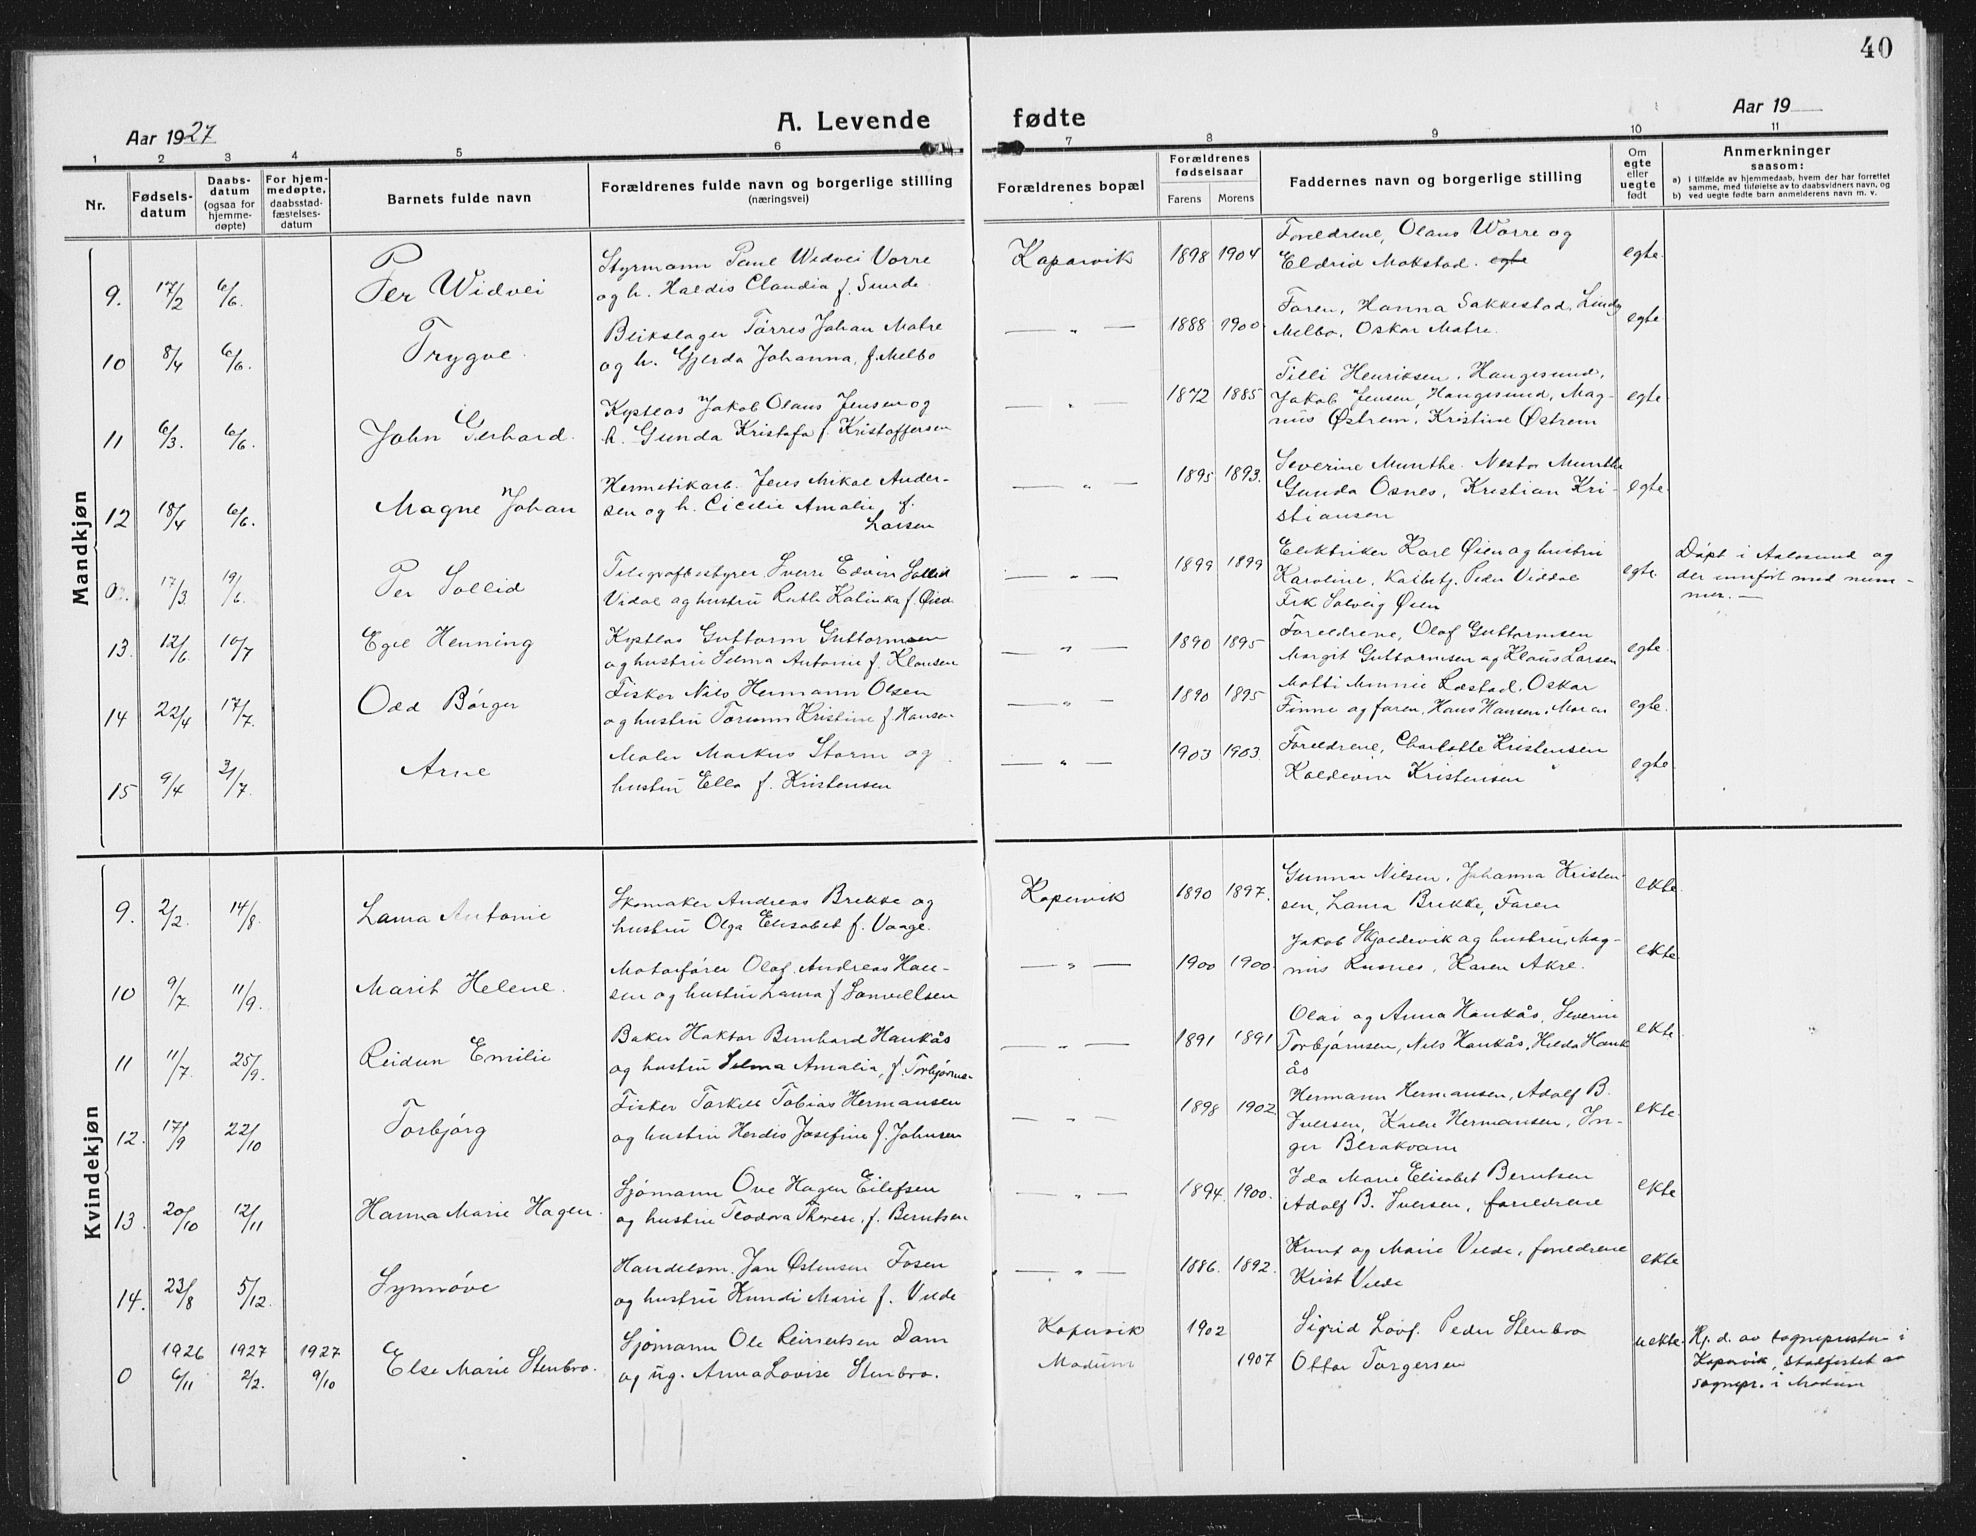 40
Aar 1927
A. Levende fødte
Aar 19
1 2 3 4 5 6 7 8 9 10 11
Nr.
Fødsels-
datum
Daabs-
datum
(ogsaa for
hjemme-
døpte)
For hjem-
medøpte,
daabsstad-
fæstelses-
datum
Barnets fulde navn
Forældrenes fulde navn og borgerlige stilling
(næringsvei)
Forældrenes bopæl
Forældrenes
fødselsaar
Farens Morens
Faddernes navn og borgerlige stilling
Om
egte
eller
uegte
født
Anmerkninger
saasom:
a) i tilfælde av hjemmedaab, hvem der har forrettet
samme, med tilføielse av to daabsvidners navn, og
b) ved uegte fødte barn anmelderens navn m. v.
Mandkjøn
9. 17/2 6/6. Per Widvei
Styrmann Paul Widvei Vorre
og h. Haldis Claudia f. Sunde.
Kopervik 1898 1904
Foreldrene, Olaus Worre og
Eldrid Mokstad. egte
egte.
10 8/4 6/6. Trygve.
Blikslager Tørres Johan Matre
og h. Gjerda Johanna, f. Melbo
— " — 1888 1900.
Faren, Hanna Sakkestad,
Melbo, Oskar Matre.
egte
11 6/3. 6/6. John Gerhard.
Kystlos Jakob Olaus Jensen og
h. Gunda Kristofa f. Kristoffersen
— " — 1872 1885
Tilli Henriksen, Haugesund,
Jakob Jensen, Haugesund, Mag-
nus Østrem, Kristine Østrem
egte
12 18/4 6/6. Magne Johan
Hermetikarb. Jens Mikal Ander-
sen og h. Cicilie Amalie f.
Larsen
— " — 1895 1893.
Severine Munthe. Nestor Munthe
Gunda Osnes, Kristian Kri-
stiansen
egte.
0. 17/3 19/6. Per Sollid
Telegrafbestyrer Sverre Edvin Sollid
Vidal og hustru Ruth Kalinka f. Øien
— " — 1899 1899
Elektriker Karl Øien og hustru
Karoline, Peder Viddal
Frk Solveig Øien
egte.
Døpt i Aalesund og
der innført med num-
mer. —
13. 12/6 10/7 Egil Henning
Kystlos Guttorm Guttormsen
og hustru Selma Antonie f. Klausen
— " — 1890 1895
Foreldrene, Olaf Guttormsen
Margit Guttormsen og Klaus Larsen
egte.
14 22/4 17/7. Odd Børger
Fisker Nils Hermann Olsen
og hustru Kristine f. Hansen
— " — 1890 1895
Minnie Lostad, Oskar
Finne og faren, Hans Hansen,
egte.
15 9/4 31/7. Arne
Maler Markus Storm og
hustru Ella f. Kristensen
— " — 1903 1903.
Foreldrene, Charlotte Kristensen
Koldevin Kristensen
egte.
Kvindekjøn
9. 2/2. 14/8. Laura Antonie
Skomaker Andreas Brekke og
hustru Olga Elisabet f. Vaage.
Kopervik 1890 1897.
Gunnar Nilsen, Johanna Kristen-
sen, Laura Brekke, Faren
ekte.
10 9/7 11/9. Marit Helene.
Motorfører Olaf Andreas Han-
sen og hustru Laura f
— " — 1900 1900.
Jakob Skjoldevik og hustru, Mag-
nus Rusnes, Karen Akre.
ekte.
11 11/7 25/9. Reidun Emilie
Baker Haktor Bernhard Haukås
og hustru Selma Amalia, f. Torbjørns-
— " — 1891 1891
Olai og Anna Haukås, Severin
Torbjørnsen, Nils Haukås, Hilda Hauk
ås
ekte.
12. 17/9 22/10 Torbjørg
Fisker Torkell Tobias Hermansen
og hustru Herdis Josefine f. Johnsen
— " — 1898 1902
Hermann Hermansen, Adolf B.
Iversen, Karen Hermansen, In-
ger Berakvam
ekte.
13. 20/10 12/11 Hanna Marie Hagen.
Sjømann Ove Hagen Eilefsen
og hustru Teodora Therese, f. Berntsen
— " — 1894. 1900.
Ida Marie Elisabet Berntsen
Adolf B. Iversen, foreldrene
ekte
14. 23/8 5/12. Synnøve
Handelsm. Jan Østensen Fosen
og hustru Kundi Marie f. Velde
— " — 1886. 1892.
Knut og Marie Velde, foreldrene
Krist Velde
ekte
0 1926 6/11 1927 2/2. 1927 9/10 Else Marie Stenbro.
Sjømann Ole Reinertsen Dam
og ug. Anna Lovise Stenbro.
Kopervik 1902
Modum 1907
Sigrid Peder Stenbro
Ottar Torgersen
uekte.
Hj. d. av sogneprsten i
Kopervik, stadfestet av
sognepr. i Modum